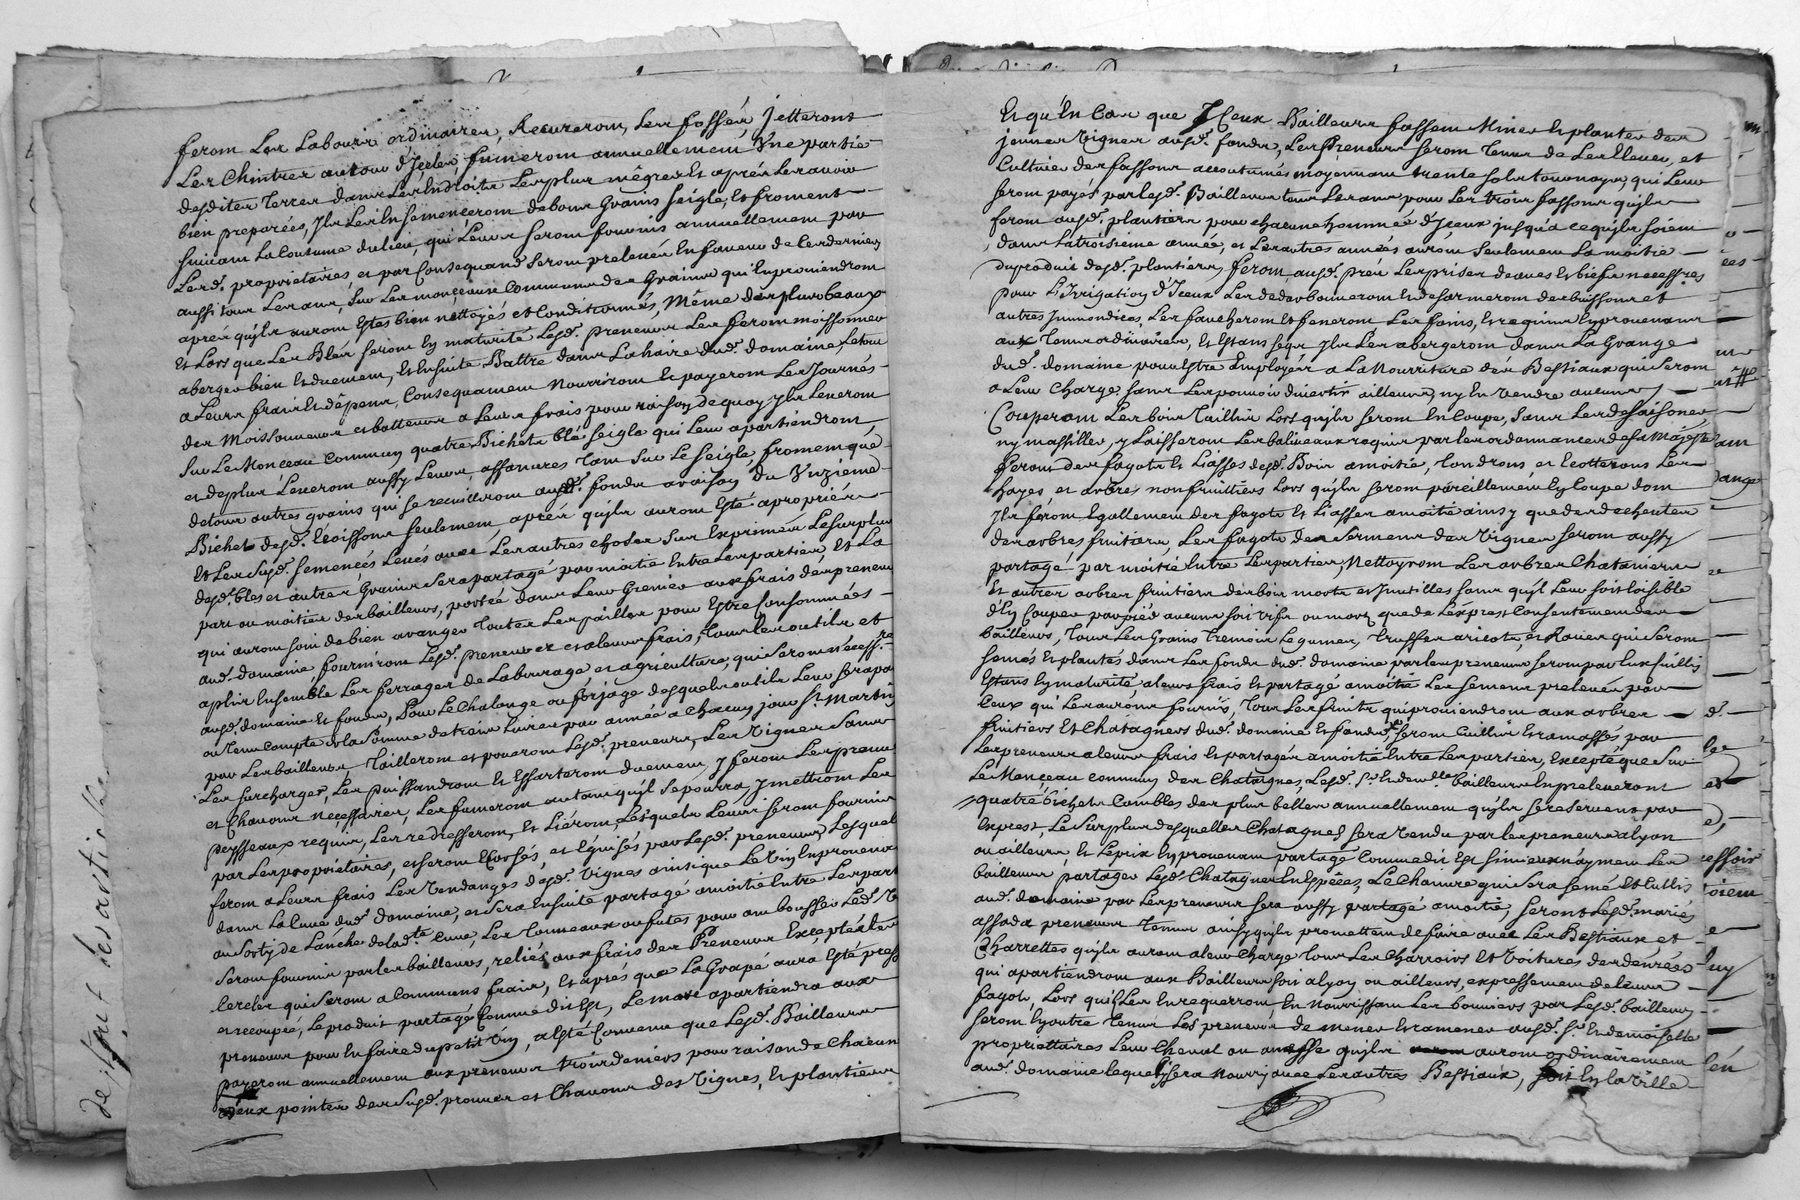 feront Les Labours ordinaires, Recureront, Les fossés Jetteront
Les Chintres autour d'Jcelles, fumeront annuellement Vne partie
desdites Terres dans Les Endroits Les plus mégres Et aprés Les avoir
bien préparées, Jls Les Ensemenceront de bons Grains seigle, Et froment
suivant La Coutume du lieu, qui Leurs seront fournis annuellement par
Lesd. propriétaires et par Consequand seront prelevés En faveur de Ces derniers
aussi tous Les ans, sur Les monceaux Communs des Grains qu'En proviendront
aprés qu'jls auront Estés bien nettoyés et Conditionnés, Même des plus beaux
Et Lors que Les Bleds seront En maturité Lesd. preneurs Les feront moissonner
aberger bien Et duement, Et Ensuite Battre dans La haire dud. domaine, Le tout
a Leurs fraix Et dépens, Consequament nourriront Et payeront Les Journés
des Moissonneurs et batteurs a Leurs frais, pour raison de quoy Jls Leveront
sur Le Monceau Commun quatre Bichets blé seigle qui Leur apartiendront
et de plus Leveront aussy Leurs affanures Tant sur Le seigle, froment que
de tous autres grains qui se recuilleront aud. fonds a raison du Vnzieme
Bichet desd. Ecoissons seulement aprés qu'jls auront Esté apropriés
Et Les susd. semences Levés avec Les autres choses sus Exprimés Le surplus
desd. bles et autres Grains sera partagé par moitié Entre Les parties, Et La
part ou moitié des bailleurs, portée dans Leur Grenier aux frais des preneurs
qui auront soin de bien avanger Toutes Les pailles pour Estre Consommées
aud. domaine, fourniront Lesd. preneurs et a leurs frais, Tous les outils et
aplits Ensemble Les ferrages de Labourage et agriculture, qui seront nécess.res
aud. domaine Et fonds, Pour Le Chalange ou forjage desquels outils Leur sera payé
ou Tenu Compte de la somme de trois Livres par année a chacun jour St. Martin
par Les bailleurs Tailleront et poueront Lesd. preneurs, Les Vignes sans
Les surcharger, Les puissandront Et Essarteront duement, y feront Les preuves
et Chavons necessaires, Les fumeront autant qu'jl se pourra, y mettront Les
peysseaux requis, Les redresseront, Et Liéront, Lesquels Leurs seront fournis
par Les propriétaires, et seront Ecossés, et Eguisés par Lesd. preneurs, Lesquels
feront a Leurs frais Les Vendanges desd. Vignes ainsi que Le Vin En provenant
dans La Cuve dud. domaine, et sera Ensuite partagé a moitié Entre Les parties
au sorty de L'anche de lad.te Cuve, Les Tonneaux ou futes pour
seront fournis par les bailleurs, reliés aux frais des Preneurs Excepté Les
Cercles qui seront a Communs fraix, Et aprés que La Grape aura Esté pressée
et recoupée, Le produit partagé Comme dit Est, Le marc apartiendra aux
preneurs pour En faire du petit Vin, a Esté Convenu que Lesd. Bailleurs
payeront annuellement aux preneurs trois deniers pour raison de Chacun
deux pointes des susd. prouues et Chavons des Vignes, Et plantiers
de sfaut Les articles
Et qu'En Cas que Jceux Bailleurs fassent Miner Et planter des
jeunes Vignes ausd. fonds, Les Preneurs seront Tenus de Les Elever, et
Cultiver des fassons accoutumés moyennant trente sols tournoys, qui Leur
seront payés par lesd. Bailleurs tous Les ans pour Les trois fassons qu'jls
feront ausd. plantiers pour chacune hommée d'Jceux jusqu'a ce qu'jls soient
dans La troisieme année, et Les autres années auront seulement La moitié
du produit desd. plantiers, feront ausd. prés Les prises deaues Et biefs necessres
pour L'Jrrigation d'Jceux Les dederbouneront Et desarmeront des buissons et
autres Jmmondices, Les faucheront Et feneront Les foins, Et reguins En provenans
aux Tems ordinaires, Et Estans segs Jls Les abergeront dans La Grange
dud. domaine pour Estre Employés a La Nourriture des Bestiaux qui seront
a Leur Charge sans Les pouvoir divertir ailleurs, ny En Vendre aucuns
Couperont Les bois Taillis Lors qu'jls seront En Coupe, sans Les desaisoner
ny massiller, y Laisseront Les baliveaux requis par les ordonnances de sa Majesté
feront des fagots Et Liasses desd. Bois a moitié, Tondront et Ecotterons Les
hayes et arbres non fruittiers Lors qu'jls seront pareillement En Coupe dont
Jls feront Egallement des fagots Et Liasses a moitié ainsy que des dechentes
des arbres fruitiers, Les fagots des sermens des Vignes seront aussy
partagé par moitié Entre Les parties, Nettoyront Les arbres Chataniers
Et autres arbres fruitiers des bois morts et Jnutilles sans qu'jl Leur soit loisible
d'En Couper par pied aucuns soit Vifs ou morts que de L'exprest Consentement des
bailleurs, Tous Les Grains Tremois Legumes, Truffles aricots, et Raves qui seront
semés Et plantés dans Les fonds dud. domaine par les preneurs seront par Eux Cuillis
Estans En maturité a leurs frais Et partagé a moitié Les semens prelevés par
Ceux qui Les auront fournis, Tous Les fruits qui proviendront aux arbres
fruitiers Et Chatagners dud. domaine Et fonds, seront Cuillis Et ramassés par
Les preneurs a leurs frais Et partagés a moitié Entre Les parties, Excepté que sur
Le Monceau commun des Chataignes, Lesd. Sr. Et dem.lle bailleurs En preleveront
quatre bichets Combles des plus belles annuellement qu'jls se reservent par
Exprest, Le surplus desquelles Chatagnes sera Vendu par les preneurs a Lyon
ou ailleurs, Et Le prix En provenant partagé Comme dit Est si mieux n'ayment Les
bailleurs partager Lesd. Chatagnes En Espèces, Le Chanvre qui sera semé Et Cullis
aud. domaine par Les preneurs sera aussy partagé a moitié, seront Lesd. mariés
assada preneurs Tenus ainsy qu'jls promettent de faire avec Les Bestiaux, et
Charrettes qu'jls auront a leur Charge Tous Les Charrois Et Voitures des denrées
qui apartiendront aux Bailleurs soit a Lyon ou ailleurs, expressement de leurs
fagots, Lors qu'jls Les En requerront, En Nourrissant Les bouviers par Lesd. bailleurs
seront En outre Tenus Les preneurs de mener Et ramener ausd. Sr. Et demoiselle
propriettaires Leur Cheval ou anesse qu'jls auront ordinairement
aud. domaine lequel sera nourry avec Les autres Bestiaux, soit En La Ville